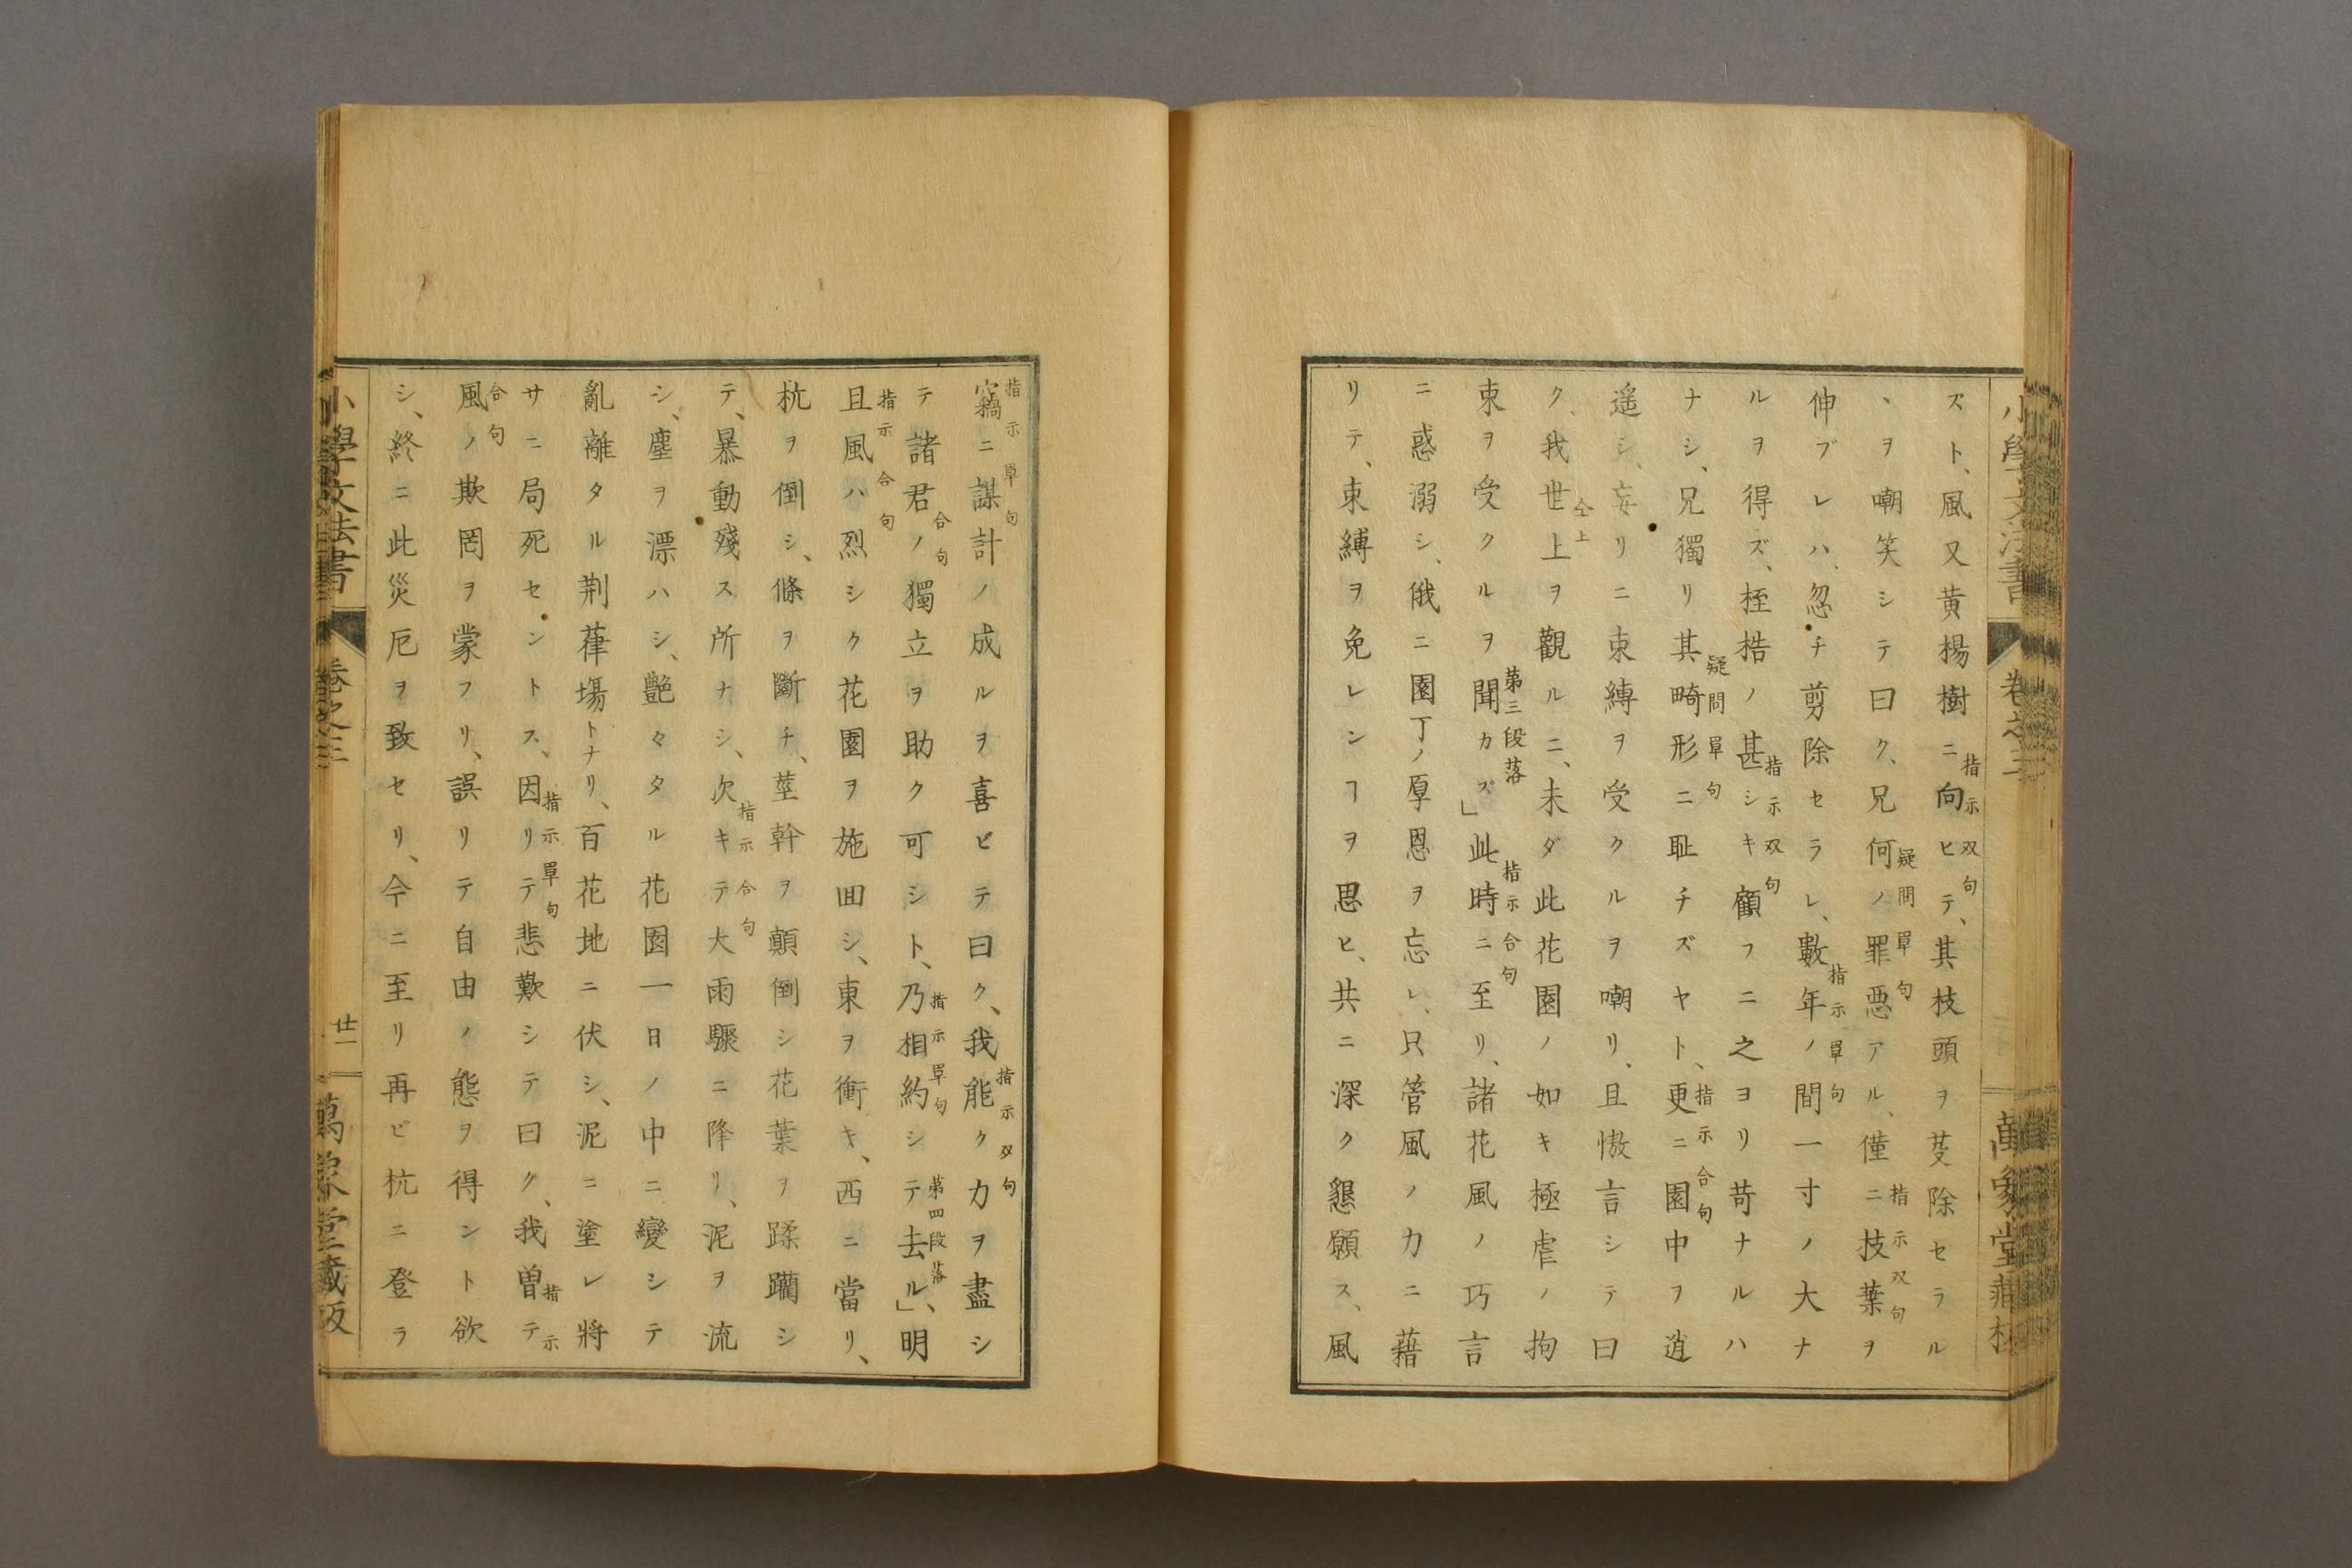 ズト、風又黄楊樹ニ向ヒテ、其枝頭ヲ芟除セラル
指示双句
ヽヲ嘲笑シテ曰ク、兄何ノ罪惡アル、僅ニ技葉ヲ
疑問單句
指示双句
伸ブレハ、忽チ剪除セラレ、數年ノ間一寸ノ大ナ
指示單句
ルヲ得ズ、桎梏ノ甚シキ顧フニ之ヨリ苛ナルハ
指示双句
ナシ、兄獨リ其畸形ニ耻チズヤト、更ニ園中ヲ逍
疑問單句
指示合句
遥シ、妄リニ束縛ヲ受クルヲ嘲リ、且慠言シテ曰
ク、我世上ヲ觀ルニ、未ダ此花園ノ如キ極虐ノ拘
仝上
束ヲ受クルヲ聞カズ」此時ニ至リ、諸花風ノ巧言
第三段落
指示合句
ニ惑溺シ、俄ニ園丁ノ厚恩ヲ忘レ、只管風ノ力ニ藉
リテ、束縛ヲ免レンヿヲ思ヒ、共ニ深ク懇願ス、風
竊ニ謀計ノ成ルヲ喜ビテ曰ク、我能ク力ヲ盡シ
指示單句
指示双句
テ諸君ノ獨立ヲ助ク可シト、乃相約シテ去ル」、明
合句
指示單句
第四段落
且風ハ烈シク花園ヲ施囬シ、東ヲ衝キ、西ニ當リ、
指示合句
杭ヲ倒シ、條ヲ斷チ、莖幹ヲ顛倒シ花葉ヲ蹂躪シ
テ、暴動殘ス所ナシ、次キテ大雨驟ニ降リ、泥ヲ流
指示合句
シ、塵ヲ漂ハシ、艷々タル花園一日ノ中ニ變シテ
亂離タル荆葎塲トナリ、百花地ニ伏シ、泥ニ塗レ將
サニ局死セントス、因リテ悲歎シテ曰ク、我曽テ
指示單句
指示
風ノ欺罔ヲ蒙フリ、誤リテ自由ノ態ヲ得ント欲
合句
シ、終ニ此災厄ヲ致セリ、今ニ至リ再ビ杭ニ登ラ
小學文法書
卷之三
廿一
萬象堂藏版